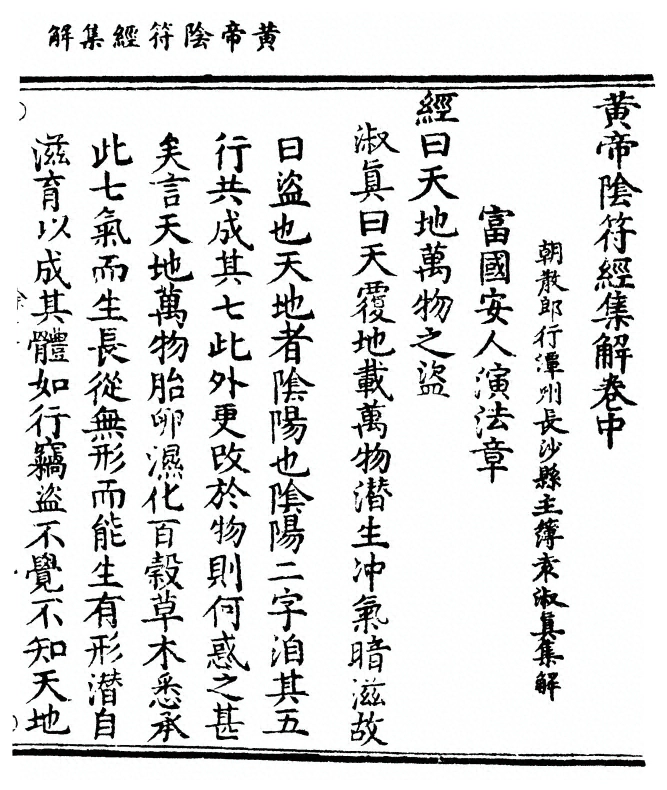 黃帝陰符經集解
黃帝陰符經集解卷中
朝散郎行潭州長沙縣主簿袁淑眞集解
富國安人演法章
經曰天地萬物之盜
淑眞曰天覆地載萬物潛生冲氣暗滋故
曰盜也天地者陰陽也陰陽二字洎其五
行共成其七此外更改於物則何惑之甚
矣言天地萬物胎卵濕化百穀草木悉承
此七氣而生長從無形而能生有形潛自
滋育以成其體如行竊盜不覺不知天地